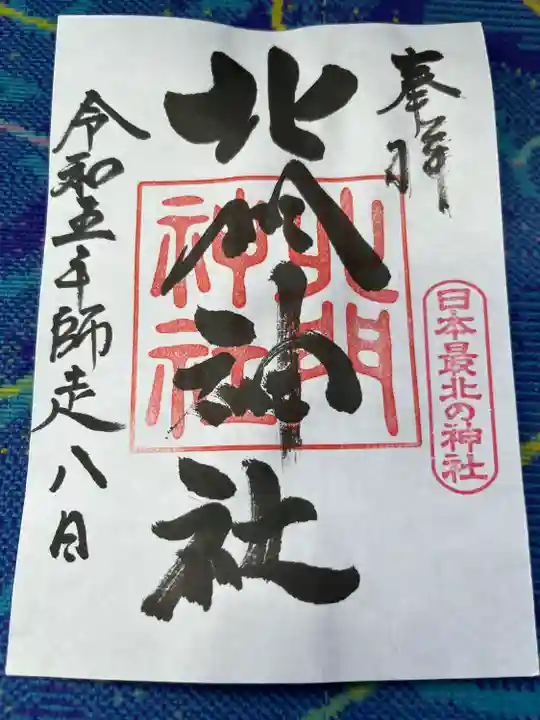 奉拝
日本最北の神社
北門神社
北門
神社
令和五年師走八日